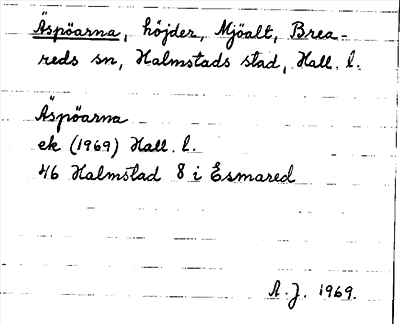 Äspöarna, höjder, Mjöalt, Brea-
reds sn, Halmstads stad, Hall. l.
Äspöarna
ek (1969) Hall. l.
46 Halmstad 8 i Esmared
A.J. 1969.